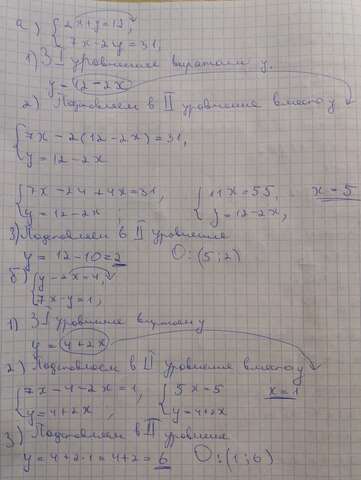 а) { 2x+y=12,
7x-2y=31,
1) Из I уравнения выразим y.
y=12-2x
2) Подставляем в II уровнение вместо y
{ 7x-2(12-2x)=31,
y=12-2x
{ 7x-24+4x=31, { 11x=55, x=5
y=12-2x; y=12-2x,
3) Подставляем в II уровнение
y=12-10=2 О:(5;2)
б) { y-2x=4,
7x-y=1,
1) Из I уровнения выразим y
y=4+2x
2) Подставляем в II уровнение вместо y
{ 7x-4-2x=1, { 5x=5 x=1
y=4+2x, y=4+2x
3) Подставляем в II уровнение
y=4+2·1=4+2=6 О:(1;6)